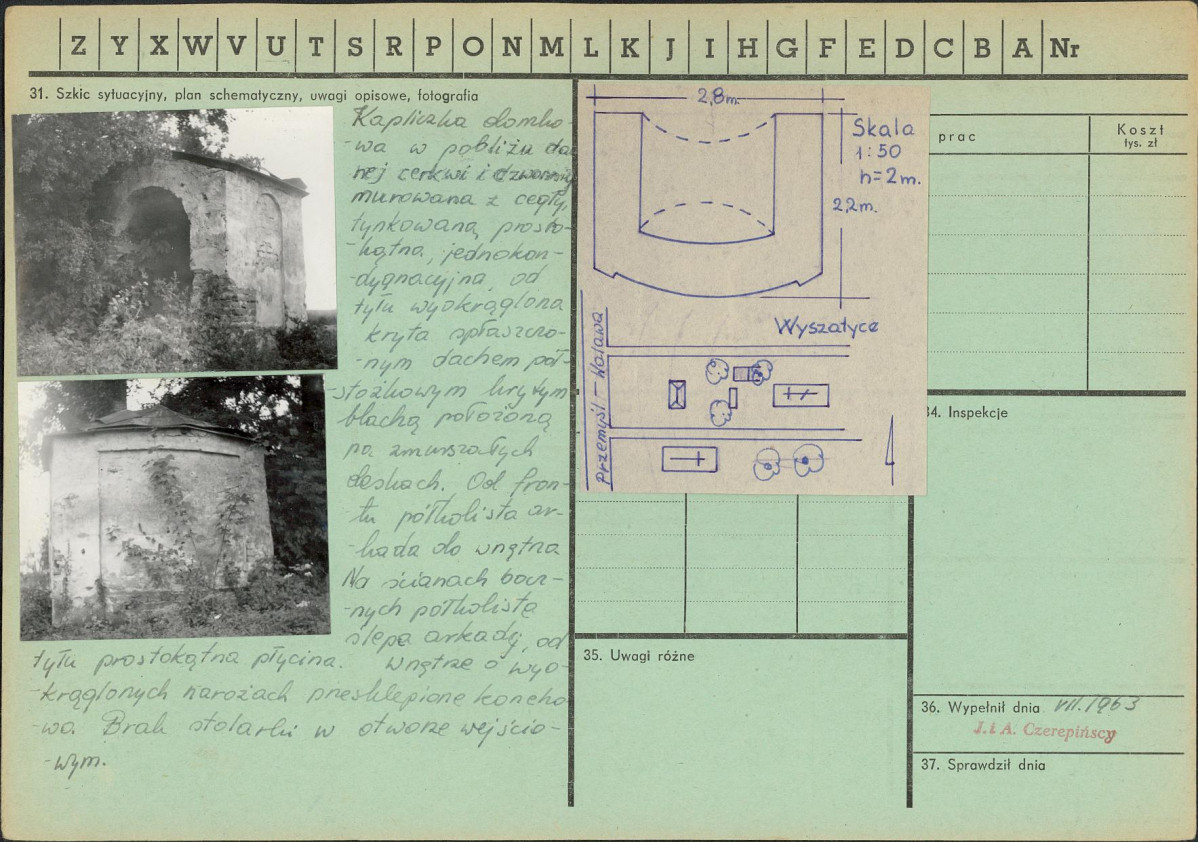 Z Y X W V U T S R P O N M L K J I H G F E D C B A Nr
31. Szkic sytuacyjny, plan schematyczny, uwagi opisowe, fotografia
Kapliczka domko-
-wa w pobliżu da
nej cerkwi i dzwonnicy
murowana z cegły,
tynkowana, prosto-
-kątna, jednokon-
-dygnacyjna, od
tyłu wyokrąglona
kryta spłaszczo-
-nym dachem pół-
-stożkowym krytym
blachą położoną
na zmurszałych
deskach. Od fron-
-tu półkolista ar-
-kada do wnętrza
Na ścianach bocz-
-nych półkoliste
ślepe arkady, od
tyłu prostokątna płycina. Wnętrze o wyo-
-krąglonych narożach przesklepione koncho-
-wo. Brak stolarki w otworze wejścio-
-wym.
2,8m.
Skala
1:50
h=2m.
2,2m.
Wyszatyce
Przemyśl - Walawa
prac
Koszt
tys. zł
34. Inspekcje
35. Uwagi różne
36. Wypełnił dnia VII.1963
J. i A. Czerepińscy
37. Sprawdził dnia